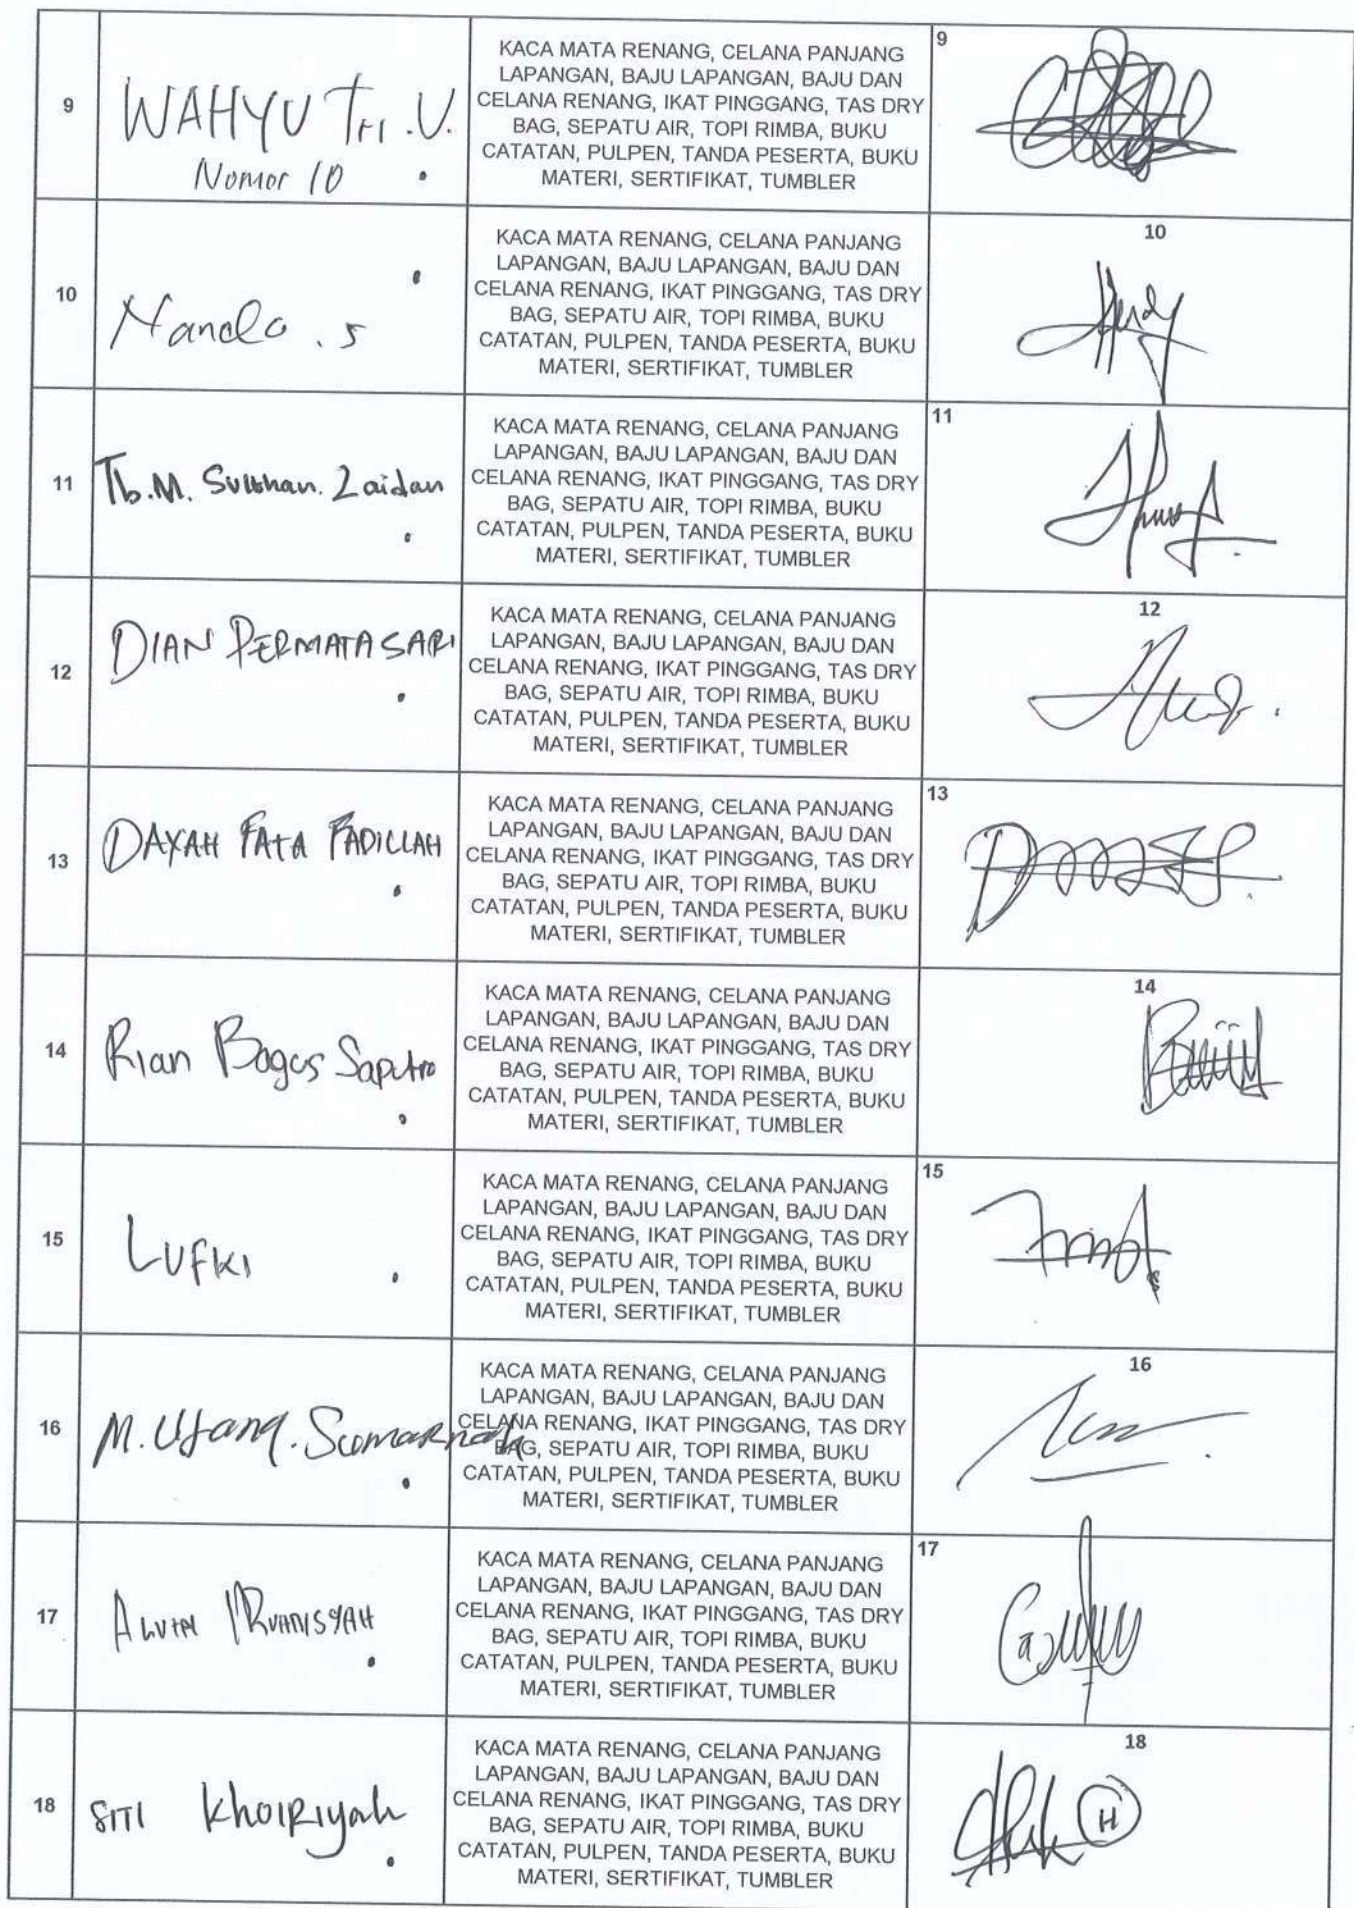 9
WAHYU Tri .V.
Nomor 10
KACA MATA RENANG, CELANA PANJANG
LAPANGAN, BAJU LAPANGAN, BAJU DAN
CELANA RENANG, IKAT PINGGANG, TAS DRY
BAG, SEPATU AIR, TOPI RIMBA, BUKU
CATATAN, PULPEN, TANDA PESERTA, BUKU
MATERI, SERTIFIKAT, TUMBLER
9
10
Nando . s
KACA MATA RENANG, CELANA PANJANG
LAPANGAN, BAJU LAPANGAN, BAJU DAN
CELANA RENANG, IKAT PINGGANG, TAS DRY
BAG, SEPATU AIR, TOPI RIMBA, BUKU
CATATAN, PULPEN, TANDA PESERTA, BUKU
MATERI, SERTIFIKAT, TUMBLER
10
11
Tb.M. Sulthan. Zaidan
KACA MATA RENANG, CELANA PANJANG
LAPANGAN, BAJU LAPANGAN, BAJU DAN
CELANA RENANG, IKAT PINGGANG, TAS DRY
BAG, SEPATU AIR, TOPI RIMBA, BUKU
CATATAN, PULPEN, TANDA PESERTA, BUKU
MATERI, SERTIFIKAT, TUMBLER
11
12
DIAN PERMATASARI
KACA MATA RENANG, CELANA PANJANG
LAPANGAN, BAJU LAPANGAN, BAJU DAN
CELANA RENANG, IKAT PINGGANG, TAS DRY
BAG, SEPATU AIR, TOPI RIMBA, BUKU
CATATAN, PULPEN, TANDA PESERTA, BUKU
MATERI, SERTIFIKAT, TUMBLER
12
13
DAYAH FATA FADILLAH
KACA MATA RENANG, CELANA PANJANG
LAPANGAN, BAJU LAPANGAN, BAJU DAN
CELANA RENANG, IKAT PINGGANG, TAS DRY
BAG, SEPATU AIR, TOPI RIMBA, BUKU
CATATAN, PULPEN, TANDA PESERTA, BUKU
MATERI, SERTIFIKAT, TUMBLER
13
14
Rian Bagus Saputra
KACA MATA RENANG, CELANA PANJANG
LAPANGAN, BAJU LAPANGAN, BAJU DAN
CELANA RENANG, IKAT PINGGANG, TAS DRY
BAG, SEPATU AIR, TOPI RIMBA, BUKU
CATATAN, PULPEN, TANDA PESERTA, BUKU
MATERI, SERTIFIKAT, TUMBLER
14
15
LUFKI
KACA MATA RENANG, CELANA PANJANG
LAPANGAN, BAJU LAPANGAN, BAJU DAN
CELANA RENANG, IKAT PINGGANG, TAS DRY
BAG, SEPATU AIR, TOPI RIMBA, BUKU
CATATAN, PULPEN, TANDA PESERTA, BUKU
MATERI, SERTIFIKAT, TUMBLER
15
16
M.
KACA MATA RENANG, CELANA PANJANG
LAPANGAN, BAJU LAPANGAN, BAJU DAN
CELANA RENANG, IKAT PINGGANG, TAS DRY
BAG, SEPATU AIR, TOPI RIMBA, BUKU
CATATAN, PULPEN, TANDA PESERTA, BUKU
MATERI, SERTIFIKAT, TUMBLER
16
17
KACA MATA RENANG, CELANA PANJANG
LAPANGAN, BAJU LAPANGAN, BAJU DAN
CELANA RENANG, IKAT PINGGANG, TAS DRY
BAG, SEPATU AIR, TOPI RIMBA, BUKU
CATATAN, PULPEN, TANDA PESERTA, BUKU
MATERI, SERTIFIKAT, TUMBLER
17
18
SITI KhoiRiyah
KACA MATA RENANG, CELANA PANJANG
LAPANGAN, BAJU LAPANGAN, BAJU DAN
CELANA RENANG, IKAT PINGGANG, TAS DRY
BAG, SEPATU AIR, TOPI RIMBA, BUKU
CATATAN, PULPEN, TANDA PESERTA, BUKU
MATERI, SERTIFIKAT, TUMBLER
18
H